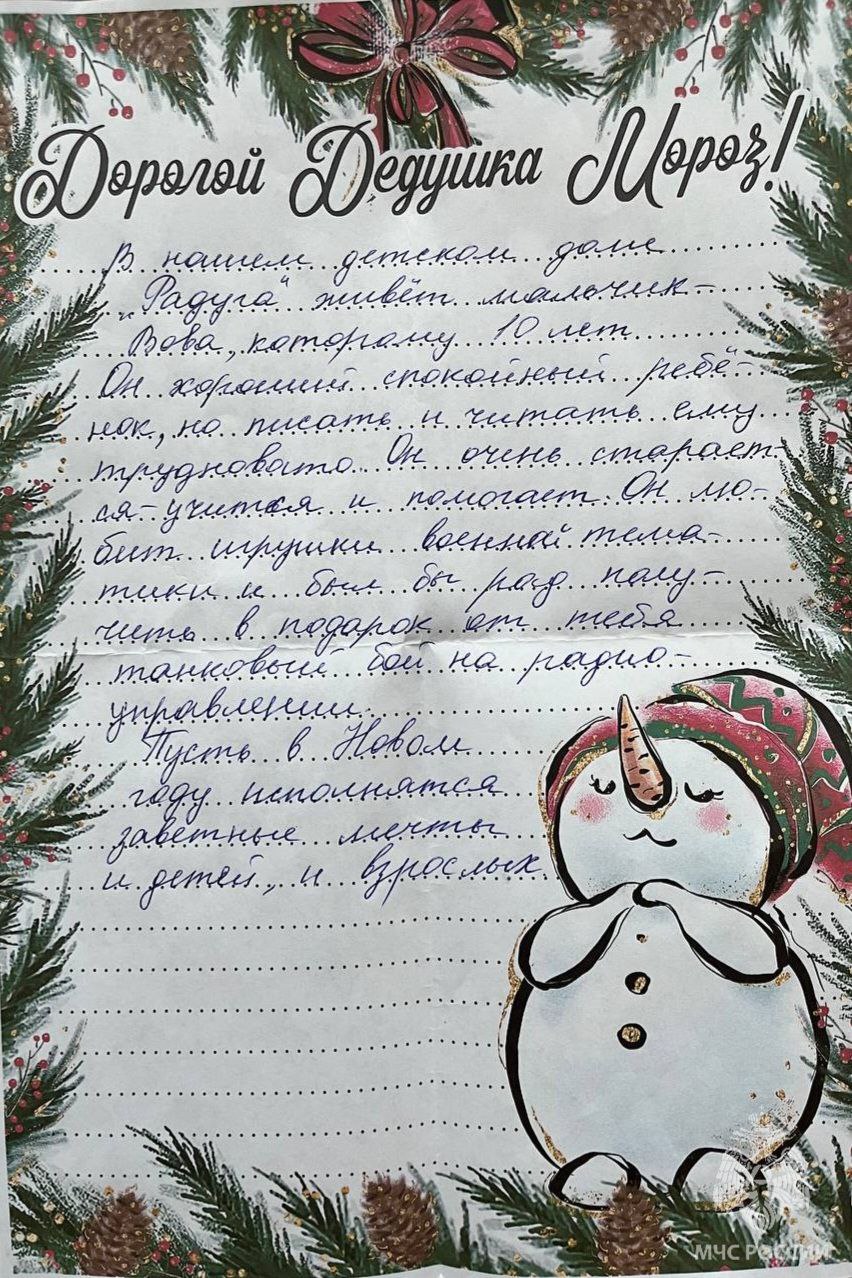 Дорогой Дедушка Мороз!
В нашем детском доме
„Радуга" живёт мальчик -
Вова, которому 10 лет
Он хороший спокойный ребё-
нок, но писать и читать ему
трудновато. Он очень старает-
ся - учится и помогает. Он лю-
бит игрушки военной тема-
тики и был бы рад полу-
чить в подарок от тебя
танковый бой на радио-
управлении.
Пусть в Новом
году исполнятся
заветные мечты
и детей, и взрослых.
МЧС РОССИИ